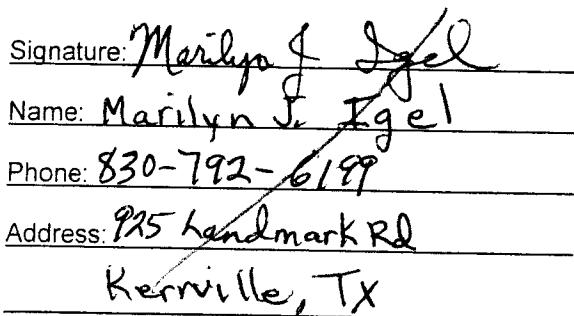 Signature: Marilyn J Igel
Name: Marilyn J. Igel
Phone: 830-792-6199
Address: 925 Landmark Rd
Kerrville, TX